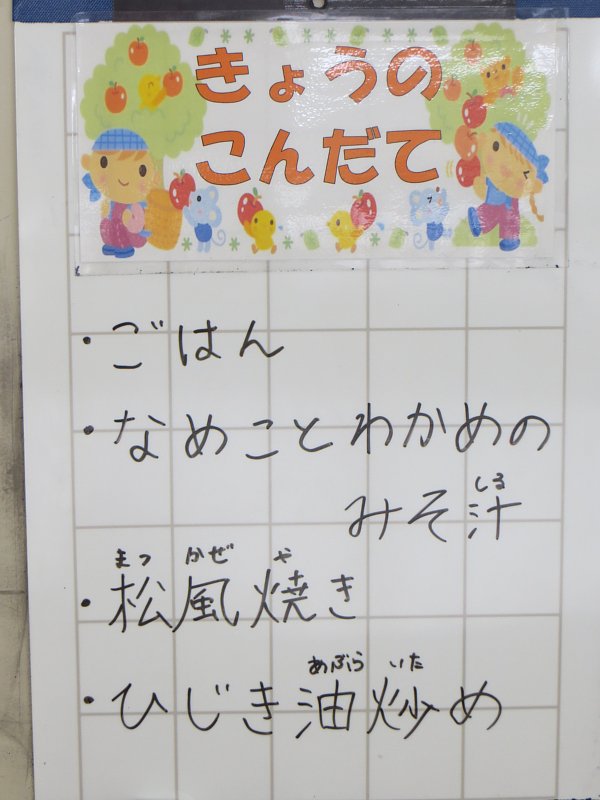 きょうの
こんだて
・ごはん
・なめことわかめの
しる
みそ汁
まつ かぜ や
・松風焼き
あぶら いた
・ひじき油炒め